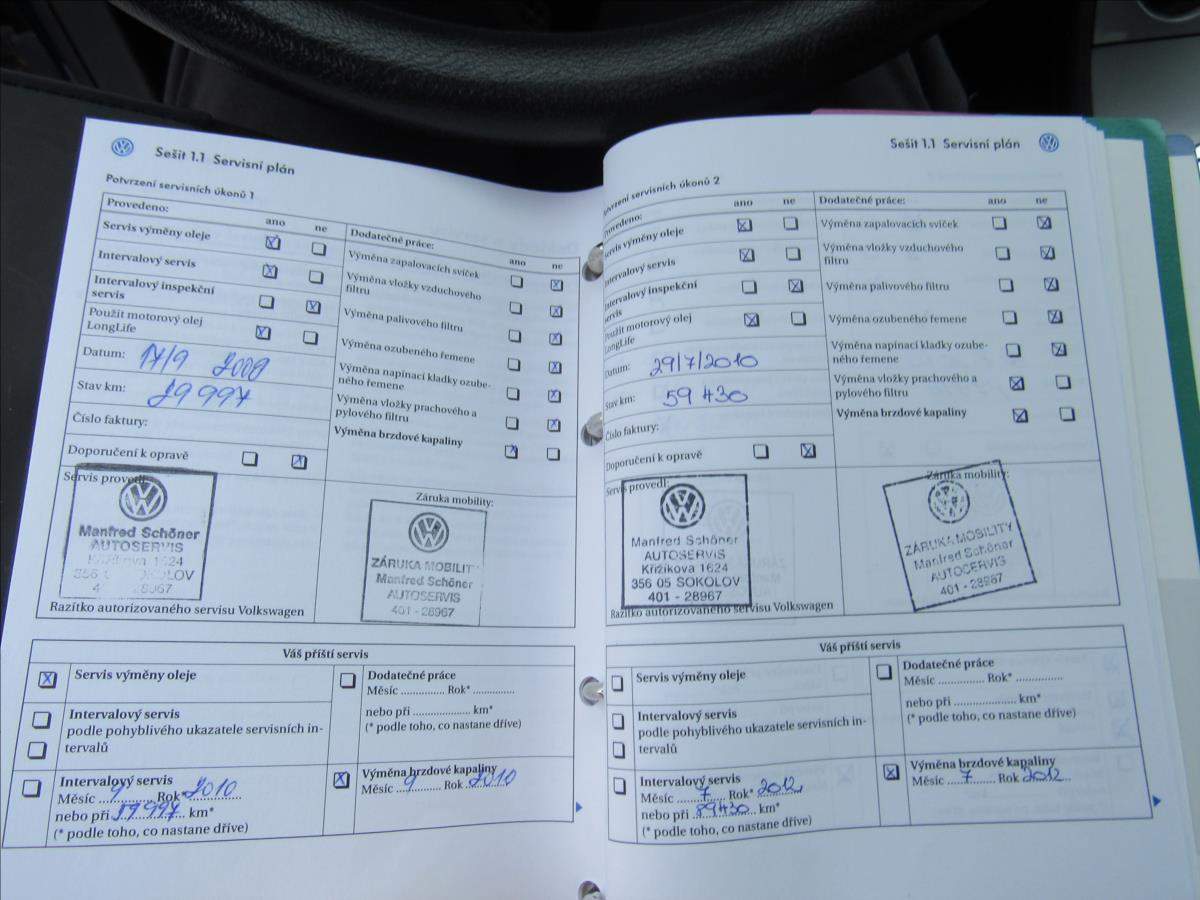 Sešit 1.1 Servisní plán
Potvrzení servisních úkonů 1
Provedeno:
ano
ne
Servis výměny oleje
Intervalový servis
Intervalový inspekční
servis
Použit motorový olej
LongLife
Datum: 17/9 2009
Stav km: 29 997
Číslo faktury:
Doporučení k opravě
Dodatečné práce:
ano
ne
Výměna zapalovacích svíček
Výměna vložky vzduchového
filtru
Výměna palivového filtru
Výměna ozubeného řemene
Výměna napínací kladky ozube-
ného řemene
Výměna vložky prachového a
pylového filtru
Výměna brzdové kapaliny
Servis provedl:
Manfred Schöner
AUTOSERVIS
Křižíkova 1624
356 SOKOLOV
28967
Razítko autorizovaného servisu Volkswagen
Záruka mobility:
ZÁRUKA MOBILIT
Manfred Schöner
AUTOSERVIS
401 - 28967
Váš příští servis
Servis výměny oleje
Intervalový servis
podle pohyblivého ukazatele servisních in-
tervalů
Intervalový servis
Měsíc 9 Rok* 2010
nebo při 59997 km*
(* podle toho, co nastane dříve)
Dodatečné práce
Měsíc ............... Rok* ...............
nebo při .................... km*
(* podle toho, co nastane dříve)
Výměna brzdové kapaliny
Měsíc 9 Rok 2010
Sešit 1.1 Servisní plán
Potvrzení servisních úkonů 2
Provedeno:
ano
ne
Servis výměny oleje
Intervalový servis
Intervalový inspekční
servis
Použit motorový olej
LongLife
Datum: 29/7/2010
Stav km: 59 430
Číslo faktury:
Doporučení k opravě
Dodatečné práce:
ano
ne
Výměna zapalovacích svíček
Výměna vložky vzduchového
filtru
Výměna palivového filtru
Výměna ozubeného řemene
Výměna napínací kladky ozube-
ného řemene
Výměna vložky prachového a
pylového filtru
Výměna brzdové kapaliny
Servis provedl:
Manfred Schöner
AUTOSERVIS
Křižíkova 1624
356 05 SOKOLOV
401 - 28967
Razítko autorizovaného servisu Volkswagen
Záruka mobility:
ZÁRUKA MOBILITY
Manfred Schöner
AUTOSERVIS
401 - 28967
Váš příští servis
Servis výměny oleje
Intervalový servis
podle pohyblivého ukazatele servisních in-
tervalů
Intervalový servis
Měsíc 7 Rok* 2012
nebo při 89430 km*
(* podle toho, co nastane dříve)
Dodatečné práce
Měsíc ............... Rok* ...............
nebo při .................... km*
(* podle toho, co nastane dříve)
Výměna brzdové kapaliny
Měsíc 7 Rok 2012